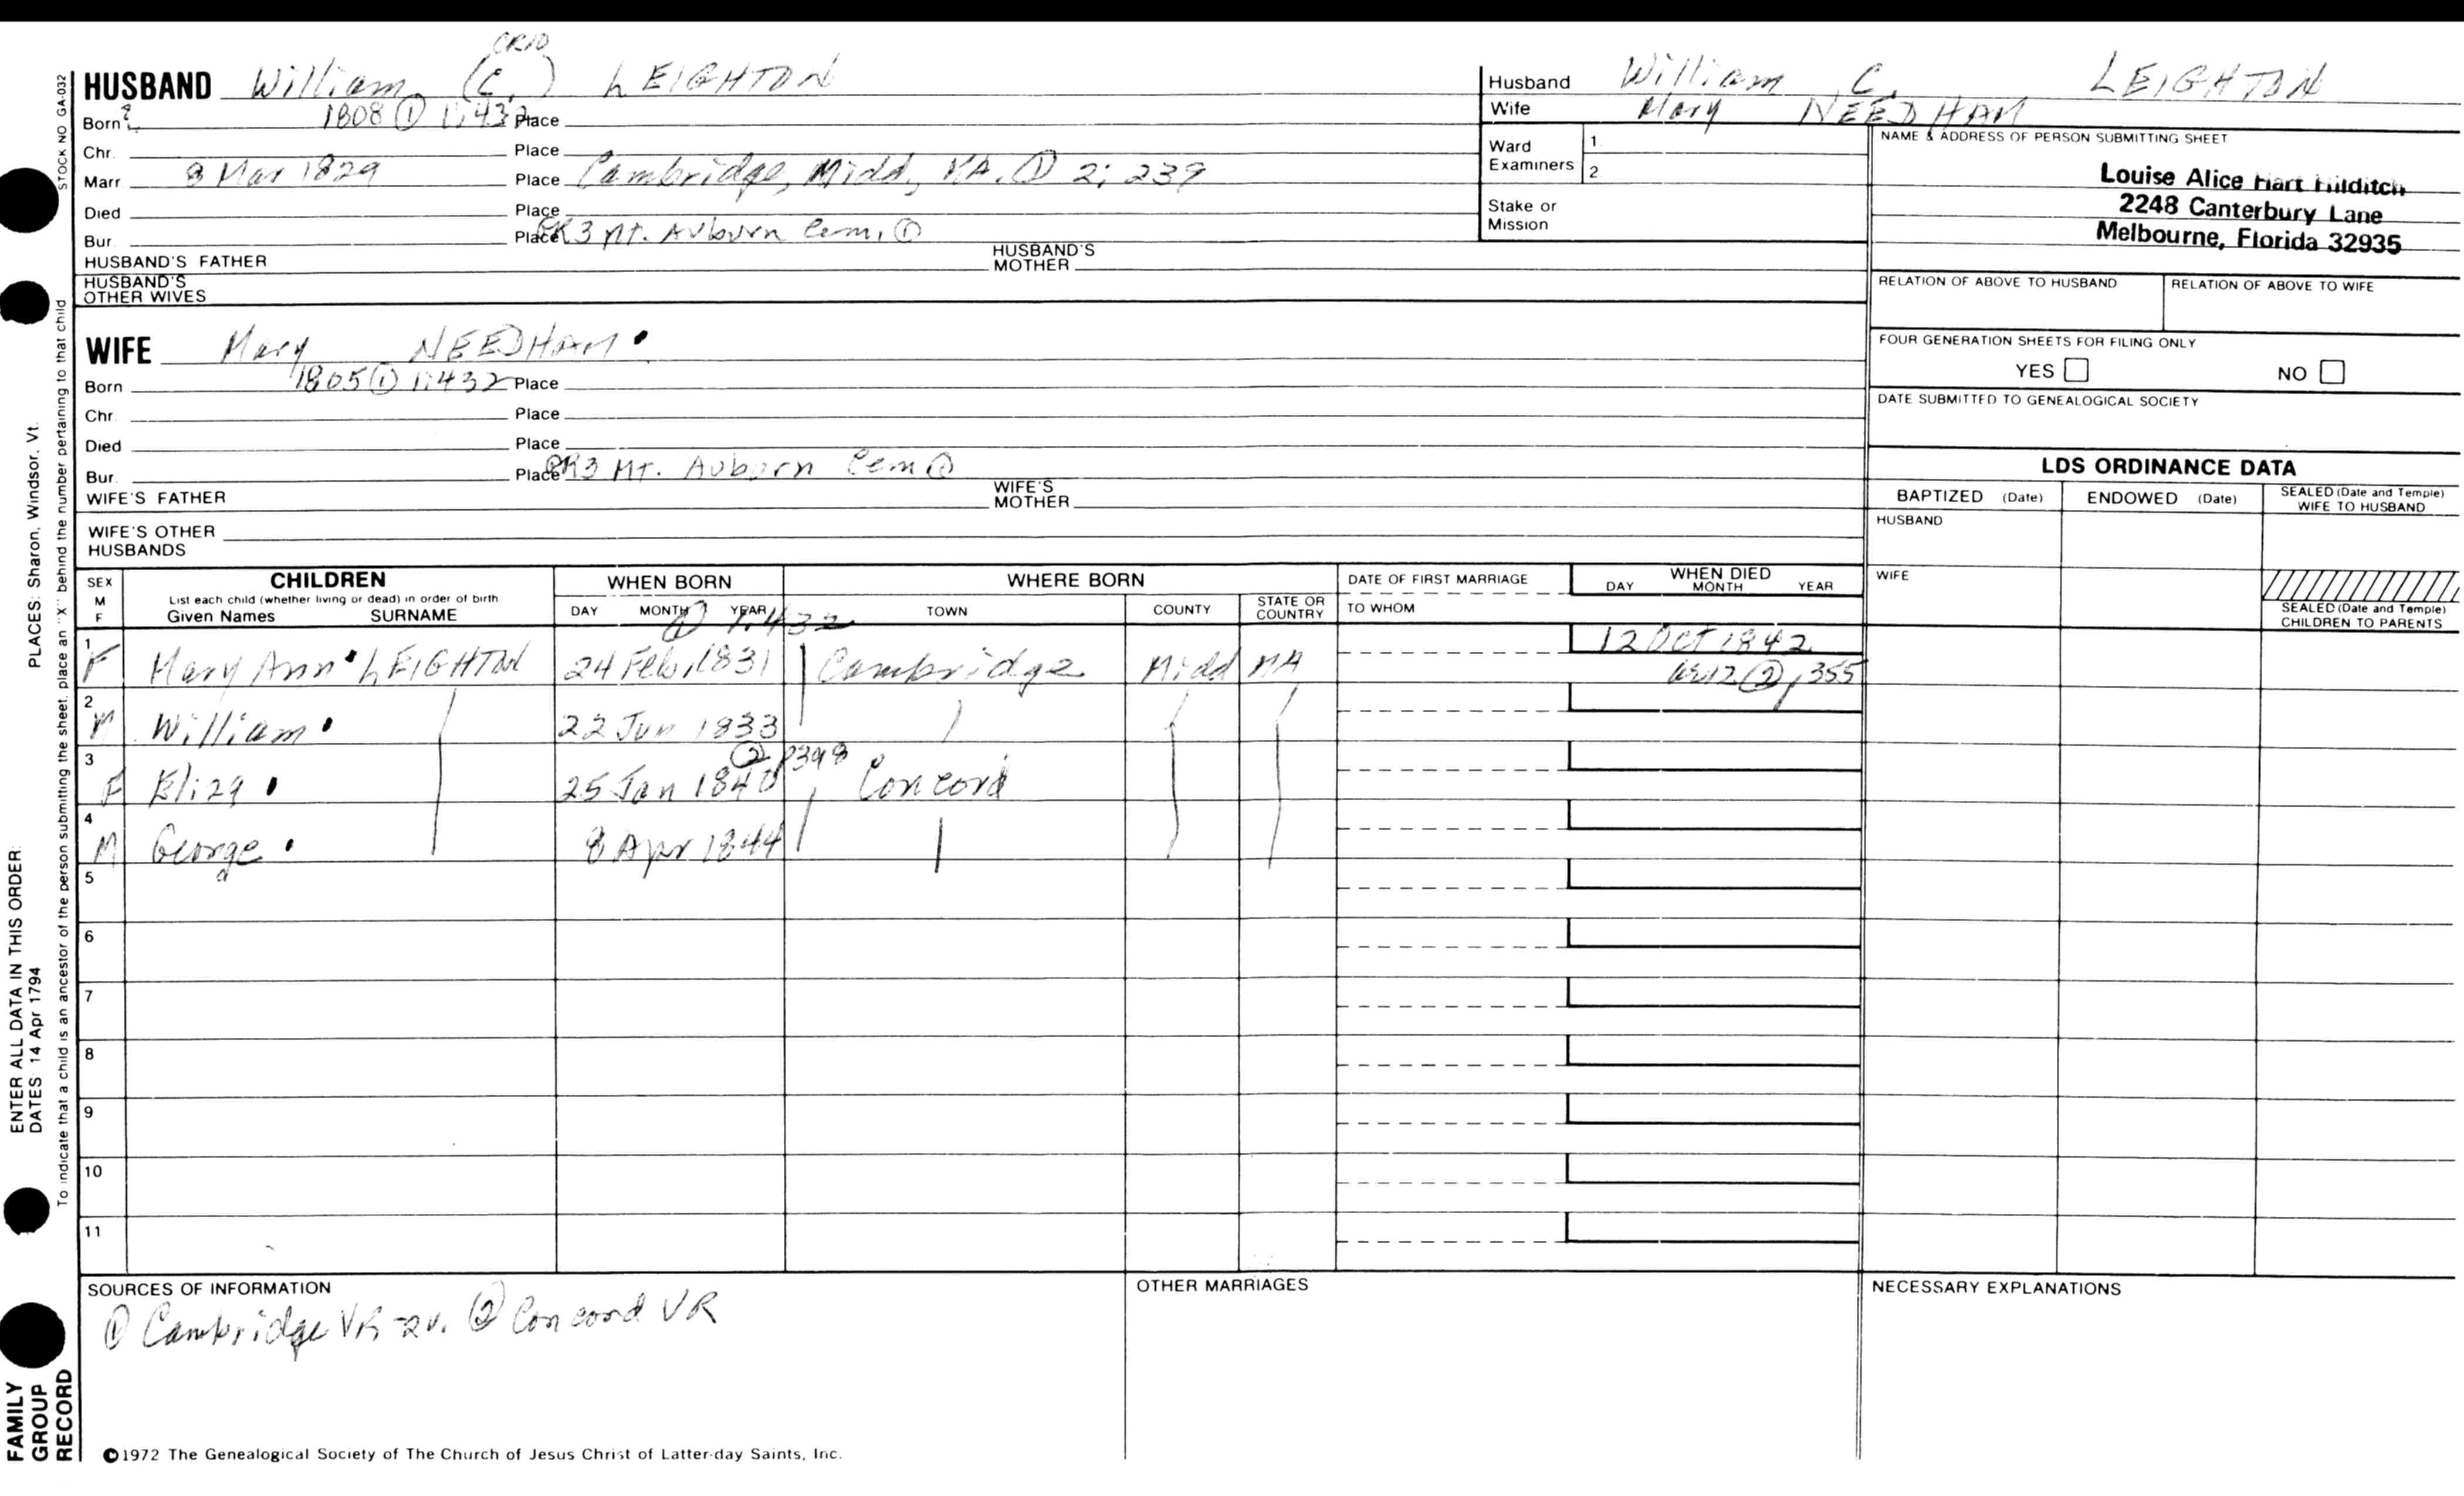 CR10
HUSBAND William (C.) LEIGHTON
Born ? 1808 ① 1:432 Place
Chr. Place
Marr 8 Mar 1829 Place Cambridge, Midd, MA. ① 2; 239
Died Place
Bur. Place CR3 Mt. Auburn Cem, ①
HUSBAND'S FATHER HUSBAND'S MOTHER
HUSBAND'S OTHER WIVES
WIFE Mary NEEDHAM •
Born 1805 ① 1:432 Place
Chr. Place
Died Place
Bur. Place CR3 Mt. Auburn Cem ①
WIFE'S FATHER WIFE'S MOTHER
WIFE'S OTHER HUSBANDS
Husband William C. LEIGHTON
Wife Mary NEEDHAM
Ward Examiners 1. 2.
Stake or Mission
NAME & ADDRESS OF PERSON SUBMITTING SHEET
Louise Alice Hart Hilditch
2248 Canterbury Lane
Melbourne, Florida 32935
RELATION OF ABOVE TO HUSBAND RELATION OF ABOVE TO WIFE
FOUR GENERATION SHEETS FOR FILING ONLY
YES NO
DATE SUBMITTED TO GENEALOGICAL SOCIETY
LDS ORDINANCE DATA
BAPTIZED (Date) ENDOWED (Date) SEALED (Date and Temple) WIFE TO HUSBAND
HUSBAND
WIFE
SEALED (Date and Temple) CHILDREN TO PARENTS
SEX M F
CHILDREN
List each child (whether living or dead) in order of birth
Given Names SURNAME
WHEN BORN
DAY MONTH YEAR
WHERE BORN
TOWN COUNTY STATE OR COUNTRY
DATE OF FIRST MARRIAGE
TO WHOM
WHEN DIED
DAY MONTH YEAR
① 1:432
1 F Mary Ann • LEIGHTON 24 Feb, 1831 Cambridge Midd MA 12 Oct 1842
② , 355
2 M William • 22 Jun 1833
② p398
3 F Eliza • 25 Jan 1840 Concord
4 M George • 8 Apr 1844
5
6
7
8
9
10
11
SOURCES OF INFORMATION
① Cambridge VR-2v. ② Concord VR
OTHER MARRIAGES
NECESSARY EXPLANATIONS
©1972 The Genealogical Society of The Church of Jesus Christ of Latter-day Saints, Inc.
STOCK NO GA-032
To indicate that a child is an ancestor of the person submitting the sheet, place an "X" behind the number pertaining to that child
ENTER ALL DATA IN THIS ORDER:
DATES 14 Apr 1794
PLACES: Sharon, Windsor, Vt.
FAMILY
GROUP
RECORD